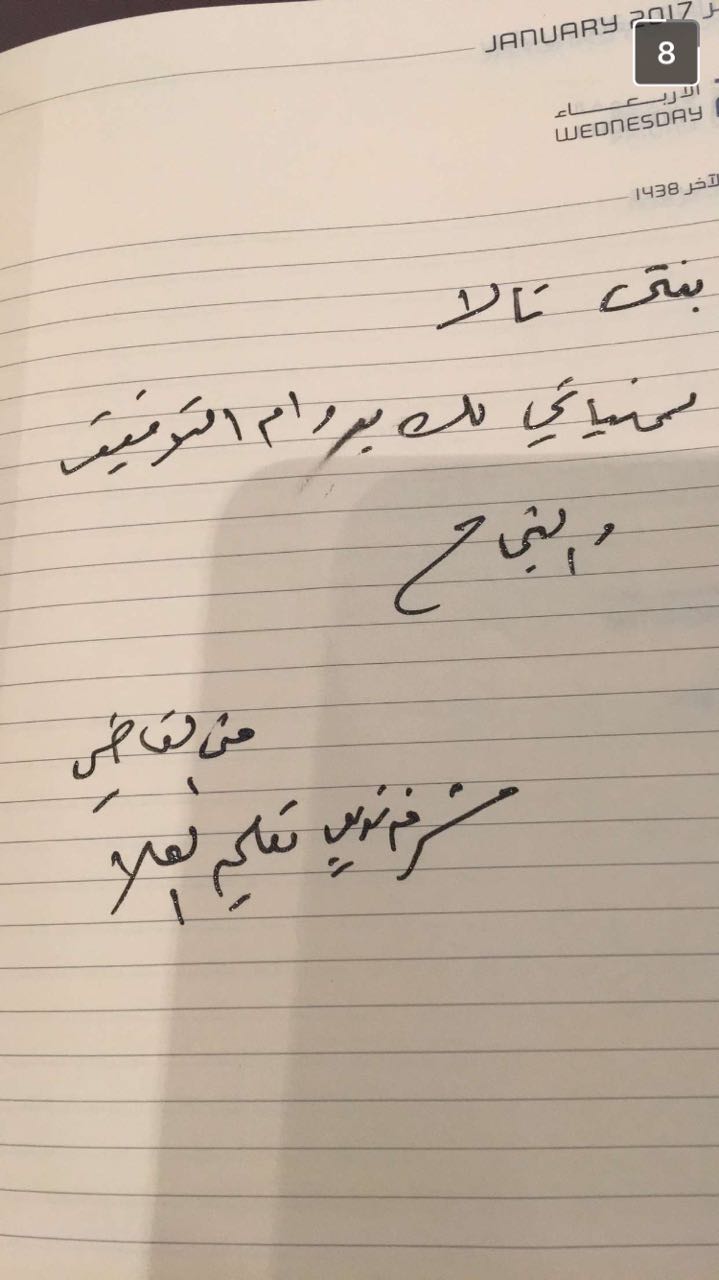 JANUARY 2017
8
الأربعاء
WEDNESDAY
الآخر 1438
بنتي تالا
تمنياتي لك بدوام التوفيق
والنجاح
منى القاضي
مشرفة تدريب تعليم العلا